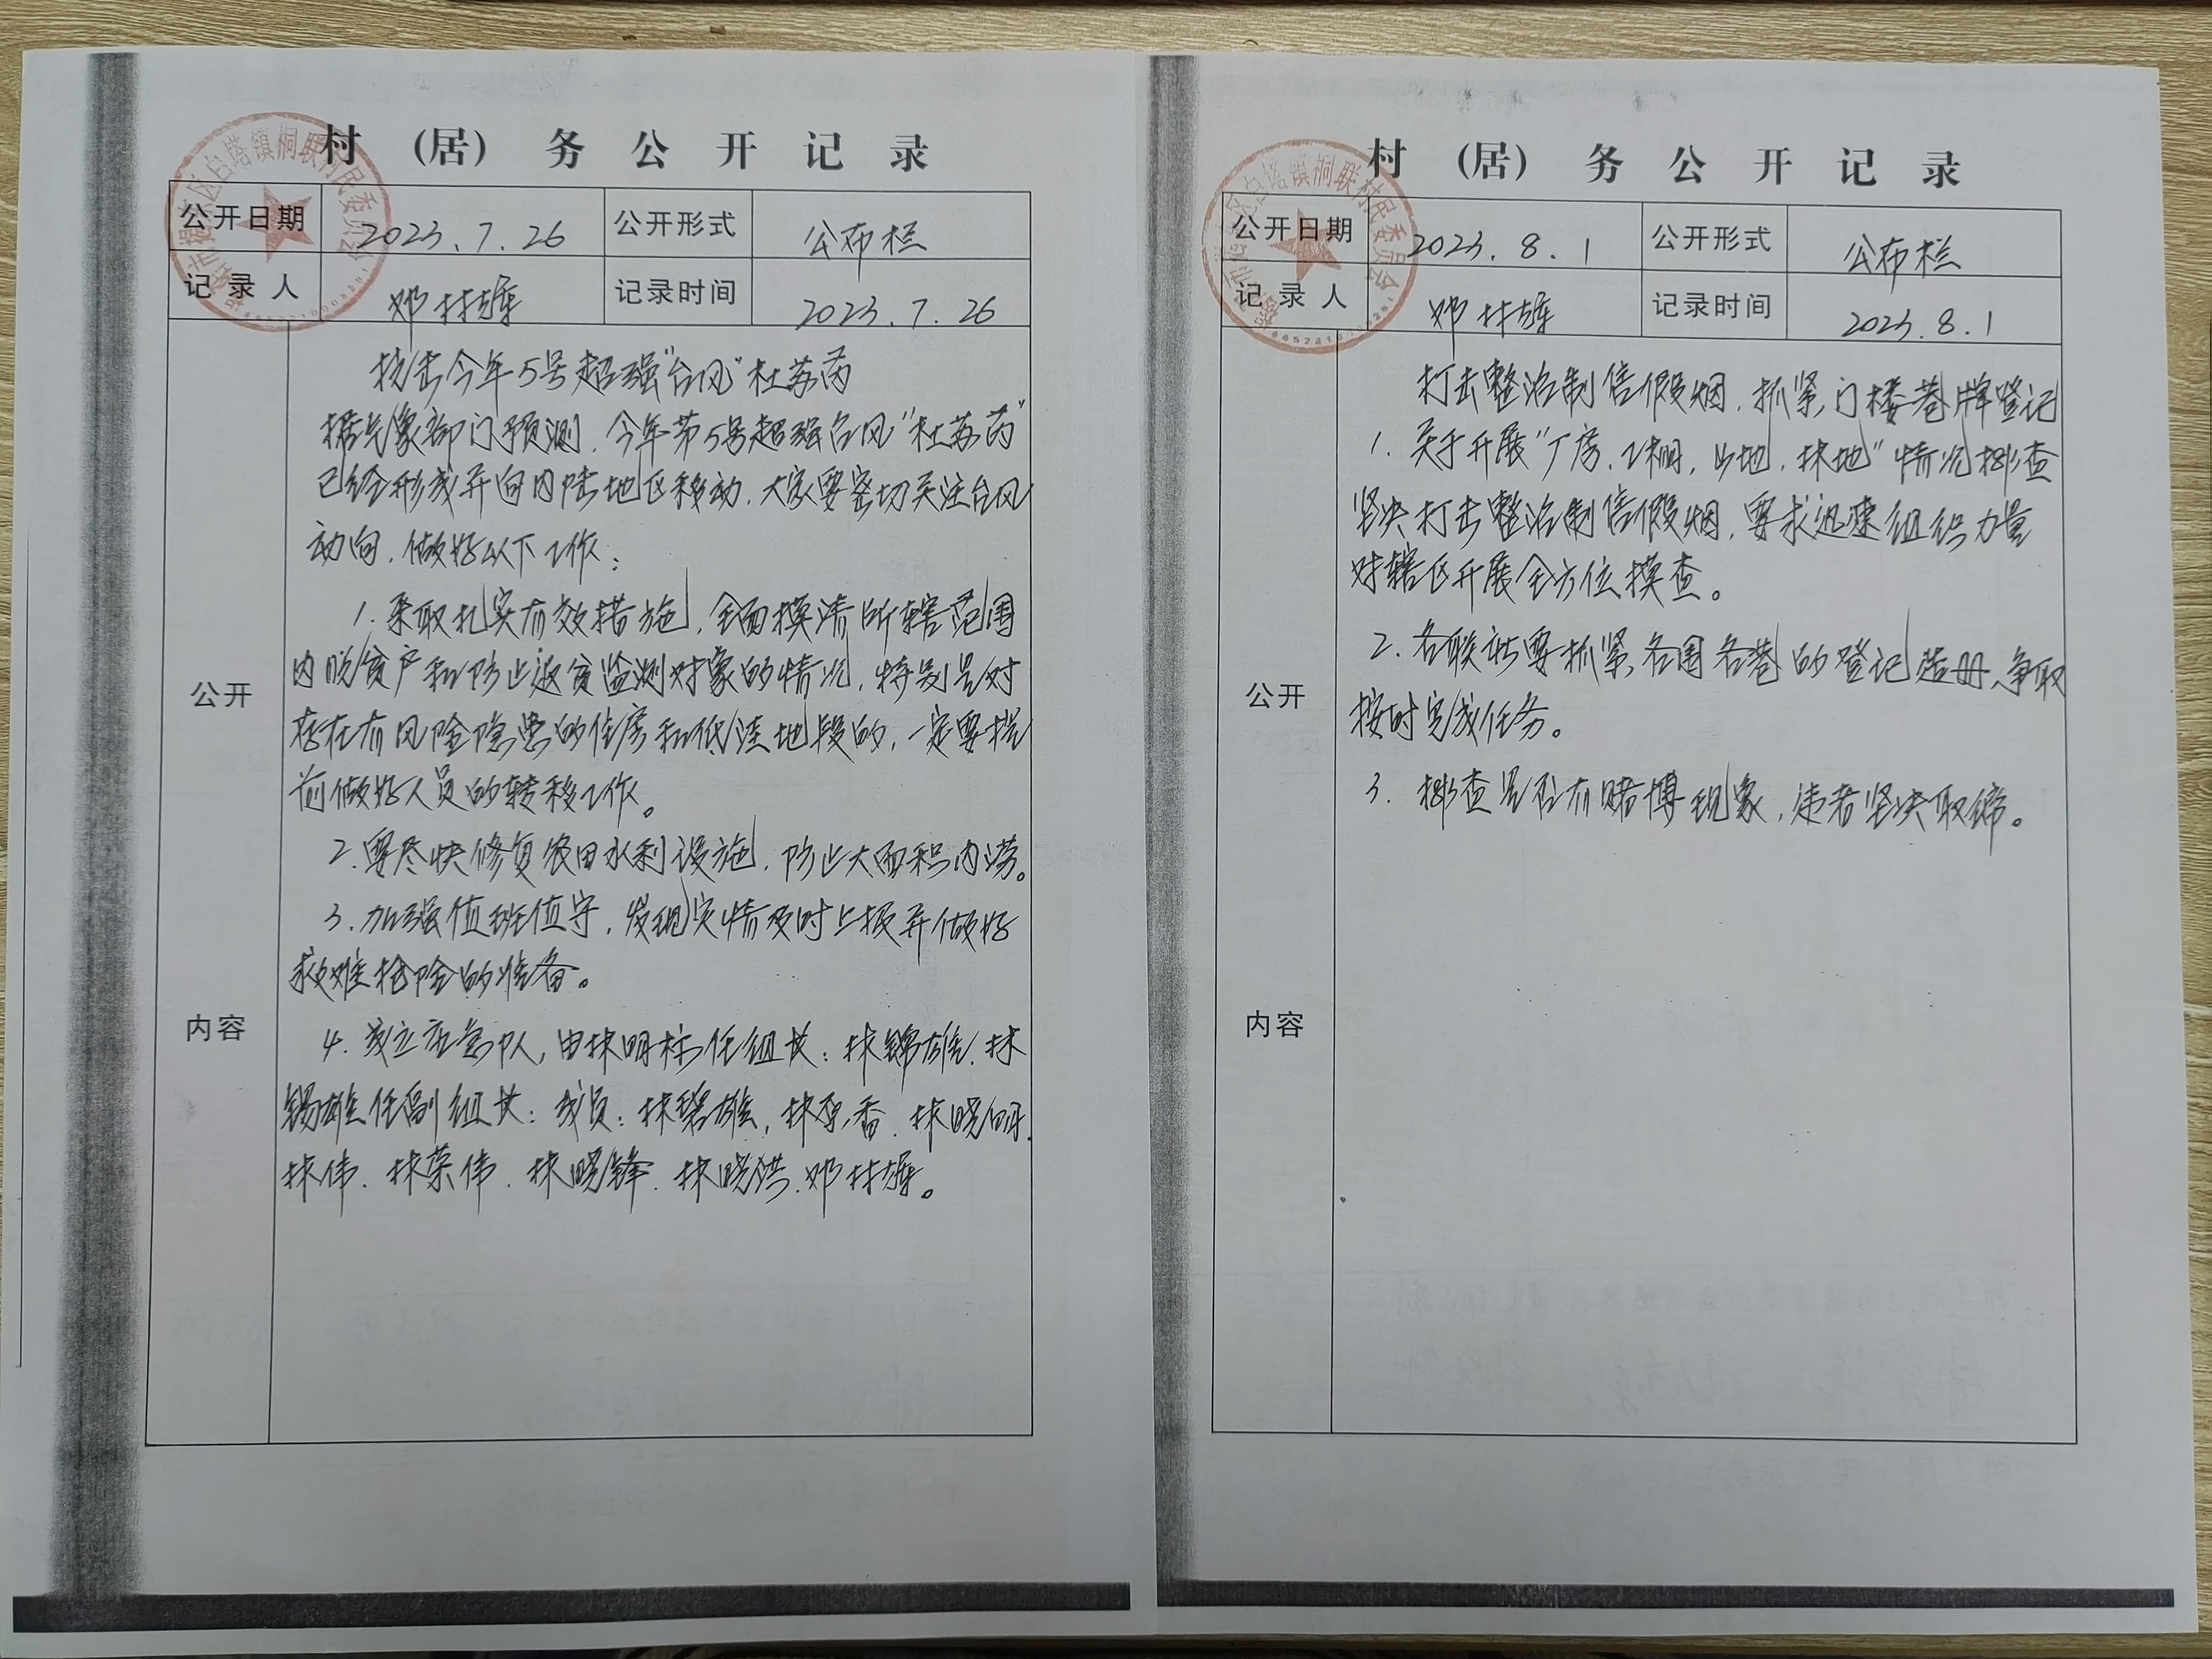 村 (居) 务 公 开 记 录
公开日期 2023.7.26 公开形式 公布栏
记录人 邓林雄 记录时间 2023.7.26
公开
内容
抗击今年5号超强"台风"杜苏芮
据气象部门预测,今年第5号超强台风"杜苏芮"
已经形成并向内陆地区移动,大家要密切关注台风
动向,做好以下工作:
1.采取扎实有效措施,全面摸清所辖范围
内脱贫户和防止返贫监测对象的情况,特别是对
存在有风险隐患的住房和低洼地段的,一定要提
前做好人员的转移工作。
2.要尽快修复农田水利设施,防止大面积内涝。
3.加强值班值守,发现灾情及时上报并做好
救难抢险的准备。
4.成立应急队,由林明标任组长:林锦雄.林
锡雄任副组长:成员:林碧雄,林惠香.林晓明.
林伟.林荣伟.林晓锋.林晓洪.邓林雄。
白塔镇桐联村民委员会
村 (居) 务 公 开 记 录
公开日期 2023.8.1 公开形式 公布栏
记录人 邓林雄 记录时间 2023.8.1
公开
内容
打击整治制售假烟,抓紧门楼巷牌登记
1.关于开展"厂房,工棚,山地,林地"情况排查
坚决打击整治制售假烟,要求迅速组织力量
对辖区开展全方位摸查。
2.各联社要抓紧各围各巷的登记造册,争取
按时完成任务。
3.排查是否有赌博现象,违者坚决取缔。
白塔镇桐联村民委员会